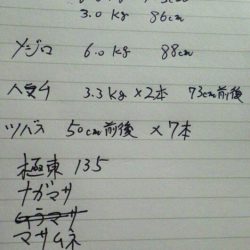 3.0kg 86cm
メジロ 6.0kg 88cm
3.3kg×2本 73cm前後
ツバス 50cm前後 ×7本
極東 135
ナガマサ
ヒラマサ
マサムネ